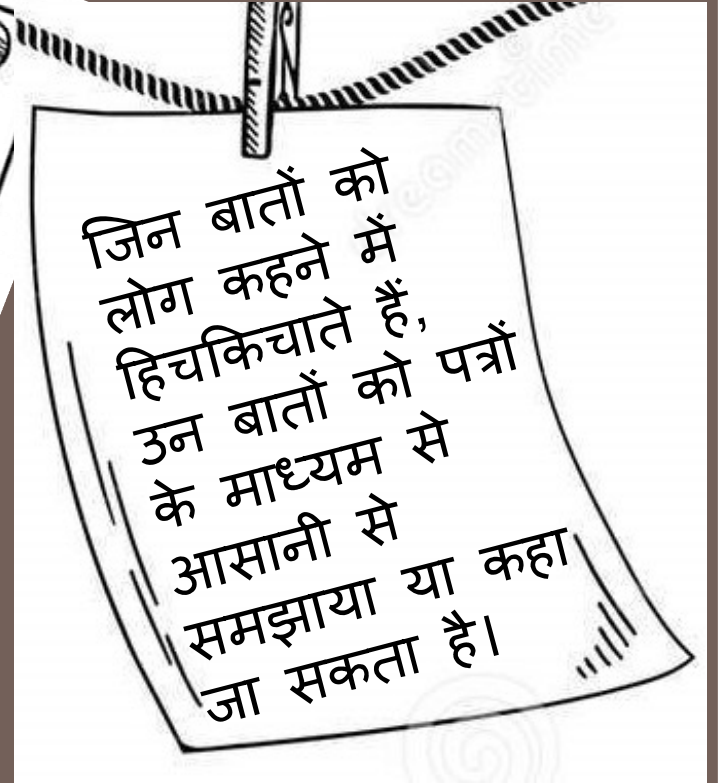 जिन बातों को
लोग कहने में
हिचकिचाते हैं,
उन बातों को पत्रों
के माध्यम से
आसानी से
समझाया या कहा
जा सकता है।